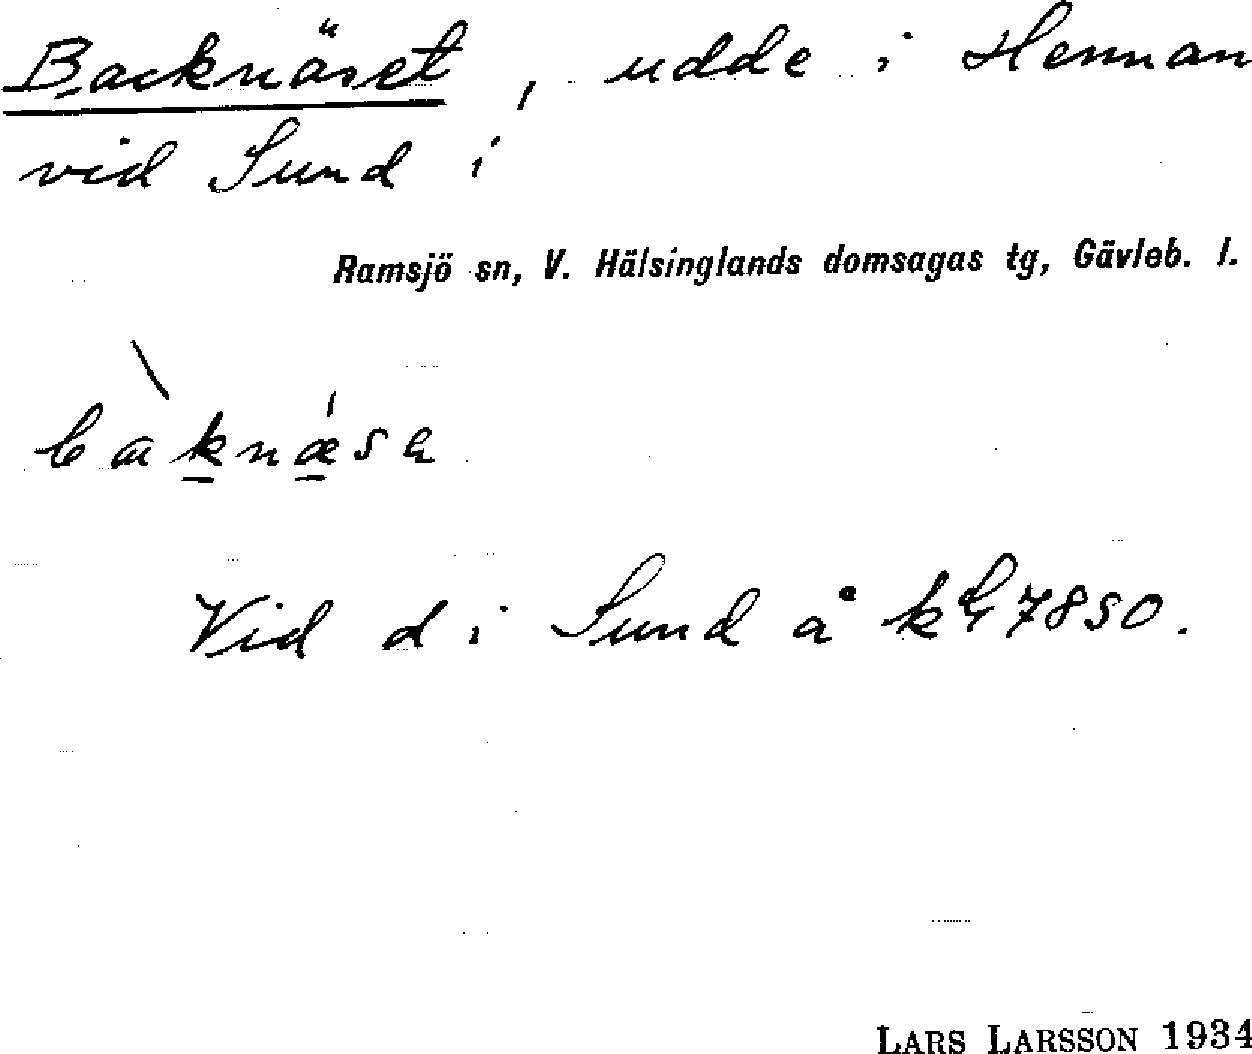 Backnäset, udde i Hennan
vid Sund i
Ramsjö sn, V. Hälsinglands domsagas tg, Gävleb. l.
Vid d i Sund å kbl 7850.
LARS LARSSON 1934